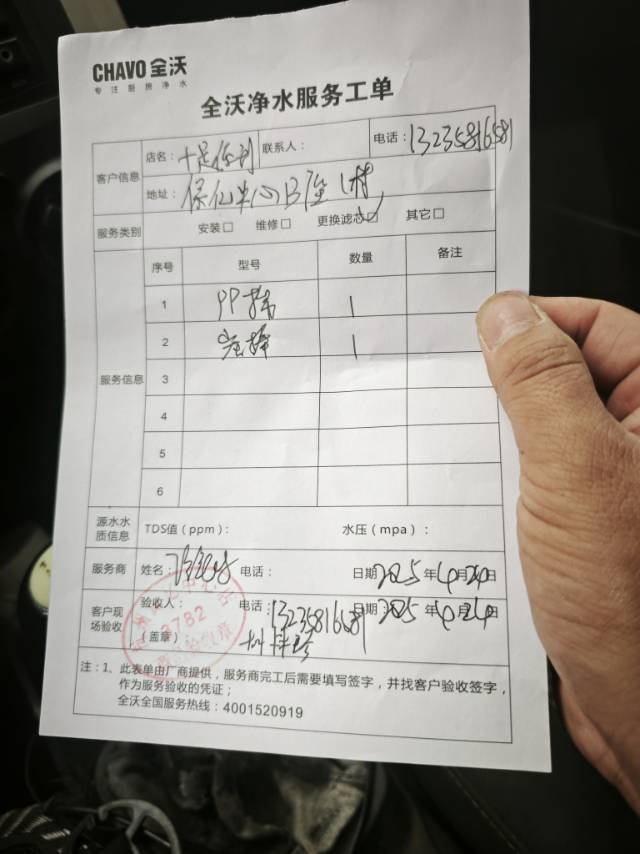 CHAVO 全沃
专注厨房净水
全沃净水服务工单
客户信息
店名：十足便利 联系人： 电话：13235816581
地址：保亿中心B座1楼
服务类别 安装□ 维修□ 更换滤芯☑ 其它□
服务信息
序号 型号 数量 备注
1 PP棉 1
2 炭棒 1
3
4
5
6
源水水质信息 TDS值（ppm）： 水压（mpa）：
服务商 姓名： 电话： 日期 2025年4月24日
客户现场验收 验收人： 电话：13235816581 日期：2025年4月24日
（盖章）
3782
注：1、此表单由厂商提供，服务商完工后需要填写签字，并找客户验收签字，
作为服务验收的凭证；
全沃全国服务热线：4001520919